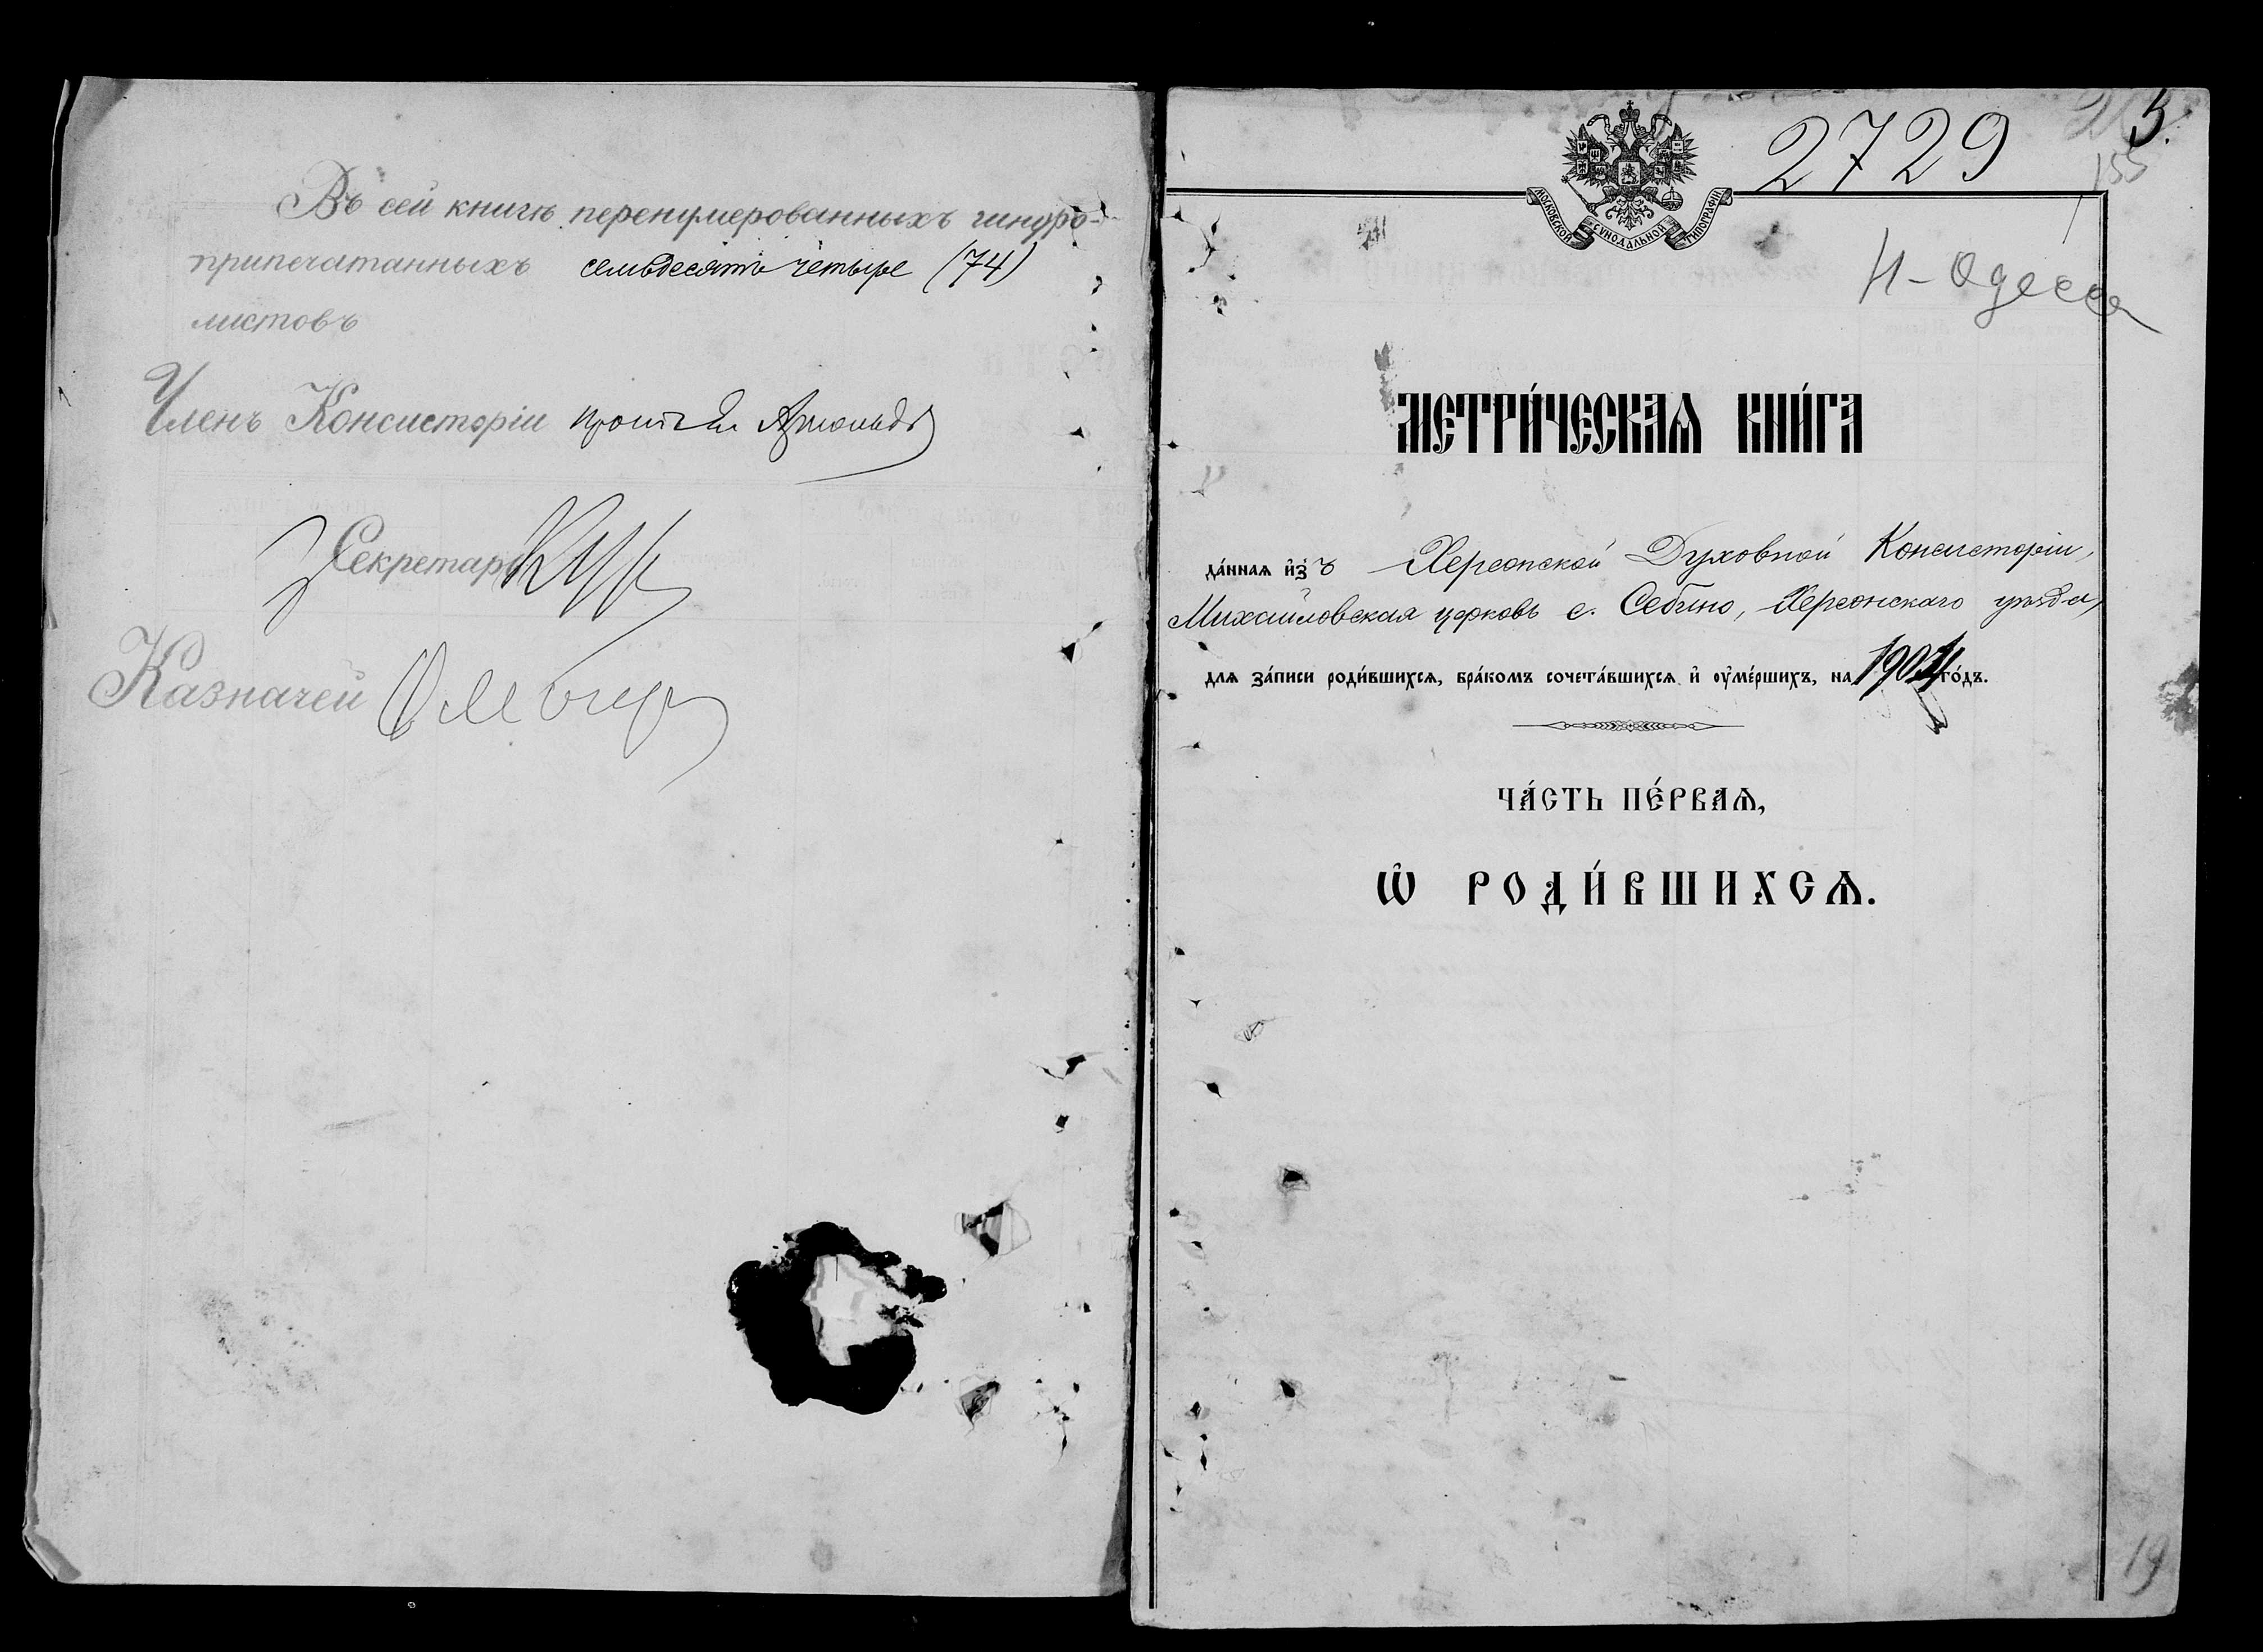 Въ сей книгѣ перенумерованныхъ шнуро-
припечатанныхъ семьдесятъ четыре (74)
листовъ
Членъ Консисторіи
Секретарь
Казначей
2729
5.
155
Н-Одесса
МОСКОВСКОЙ СѴНОДАЛЬНОЙ ТИПОГРАФІИ
МЕТРИ́ЧЕСКАѦ КНИ́ГА
да́ннаѧ и҆з̾ъ Херсонской Духовной Консисторіи,
Михайловская церковь с. Себино, Херсонскаго уѣзда,
для за́писи роди́вшихсѧ, бра́комъ сочета́вшихсѧ и҆ ѹ҆ме́ршихъ, на 1904 го́дъ.
ЧА́СТЬ ПЕ́РВАѦ,
Ѡ҆ РОДИ́ВШИХСѦ.
19